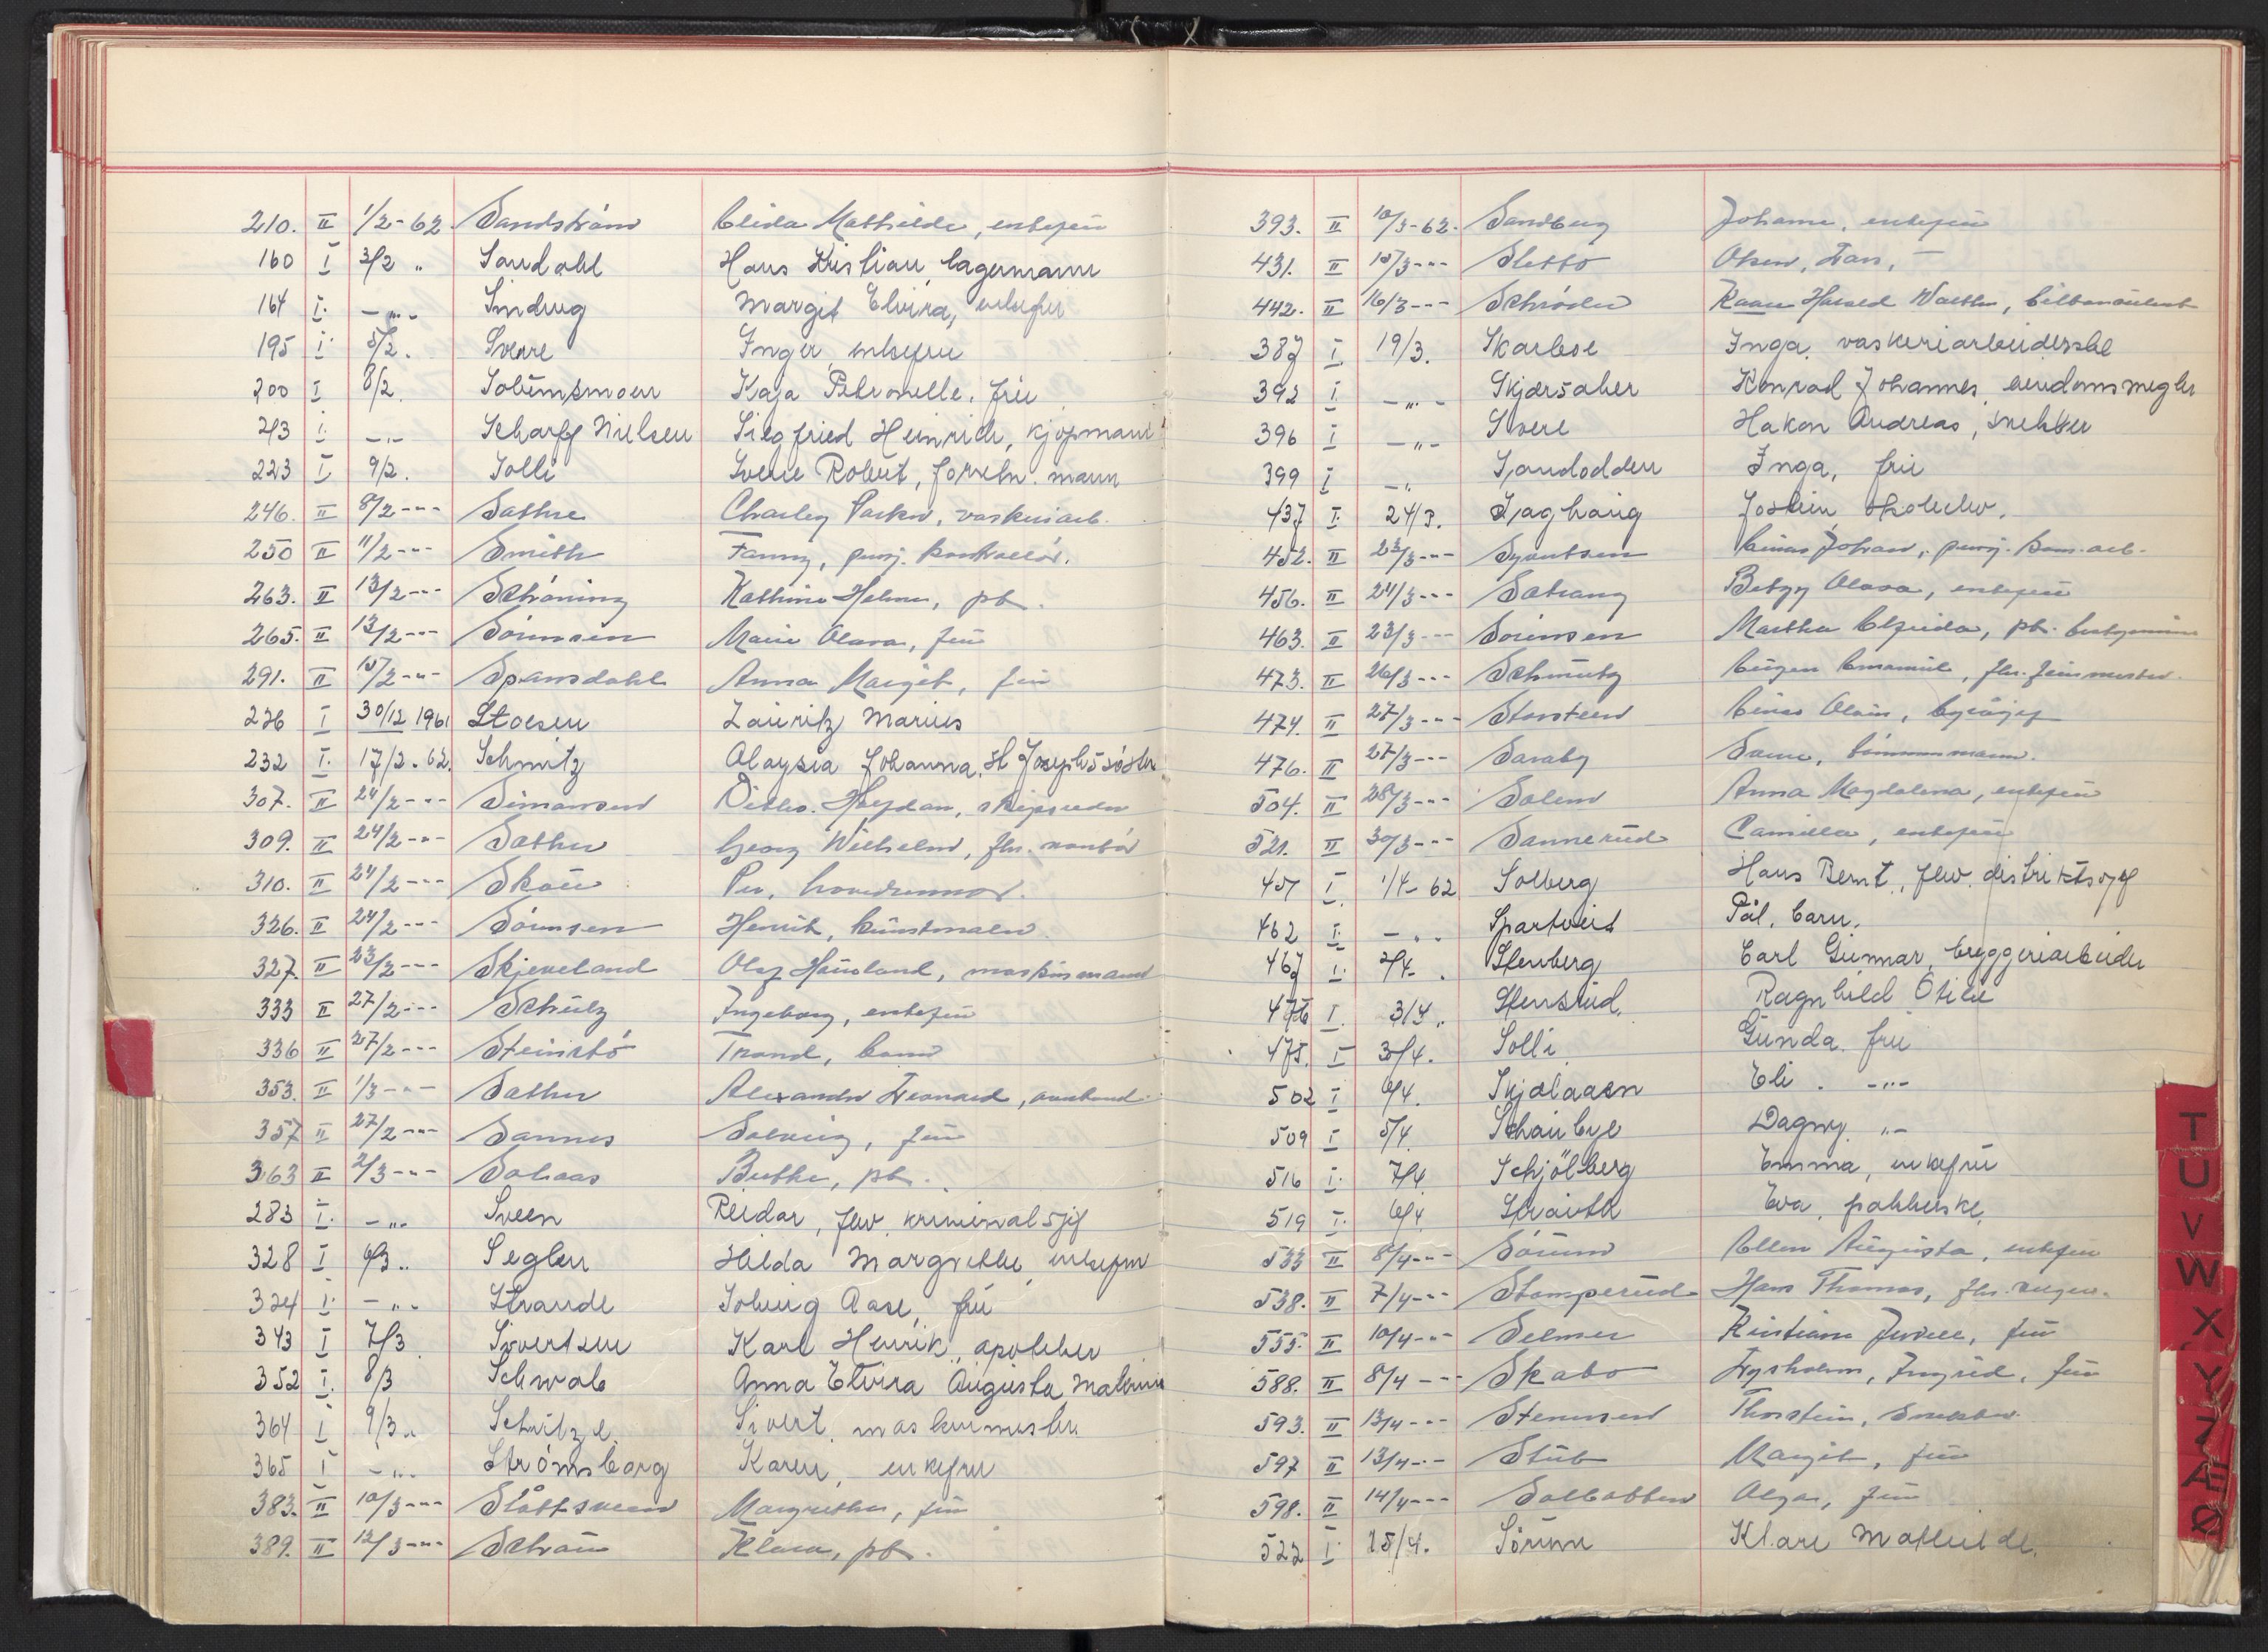 210. II 1/2-62 Sandström Elida Mathilde, enkefru
160 I 3/2 " Sandahl Hans Kristian, lagermann
164 I. -"- Sindrug Margit Elvira, enkefru
195 I. 5/2. Sverre Inger, enkefru
200 I 8/2. Solumsmoen Kaja Petronelle, fru
213 I. -"- Scharff Nielsen Siegfried Heinrich, kjøpmann
223 I 9/2. Solli Sverre Robert, forretn. mann
246. II 8/2-"- Sæthre Charley Parker, vaskeriarb.
250 II 11/2-"- Smith Fanny, pensj. kontrollør.
263. II 13/2-"- Schrøning Kathinca Helene, pb.
265. II 13/2-"- Sørensen Marie Olava, fru
291. II 15/2-"- Spansdahl Anna Margit, fru
226 I 30/12 1961 Stoesen Lauritz Marius
232 I. 17/2.62. Schmitz Aloysia Johanna, St Josephssøster
307. II 24/2-"- Simonsen Ditlev. Heydam, skipsreder
309. II 24/2-"- Sæther Georg Wilhelm, fhv. montør
310. II 24/2-"- Skau Per, hovedrevisor.
326. II 24/2-"- Sørensen Henrik, kunstmaler
327. II 23/2-"- Skjeveland Olaf Hauland, maskinmann
333 II 27/2-"- Schulz Ingeborg, enkefru
336 II 27/2-"- Steinsbø Trond, barn
353. II 1/3-"- Sæther Alexander Leonard,
357 II 27/2-"- Sannes Solveig, fru
363 II 2/3-"- Solaas Berthe, pb.
283 I. -"- Sveen Reidar, fhv. kriminalsjef
328 I 6/3.. Seglen Hilda Margrethe, enkefru
324 I. -"- Strande Solveig Aase, fru
343 I 7/3. Sivertsen Karl Henrik, apoteker
352 I. 8/3 Schwab Anna Elvira Augusta Mathine
364 I 9/3.. Schulze. Sivert, maskinmester.
365 I -"- Strømsborg Karen, enkefru
383. II 10/3-"- Slåttsveen Margrethe, fru
389. II 12/3-"- Schrau Klara, pb.
393. II 10/3-62. Sandberg Johanne, enkefru
431. II 15/3-"- Slettø Olsen, Lars, -
442. II 16/3-"- Schrøder Kaare Harald Walther,
387 I 19/3. Skarbøe Inga, vaskeriarbeiderske
392 I. -"- Skjærsaker Konrad Johannes, eiendomsmegler
396 I -"- Svere Hakon Andreas, snekker
399 I -" Sandodden Inga, fru
437 I. 24/3. Sjaghaug Jostein, skoleelev.
452. II 23/3-"- Syvertsen Einar Johan, pensj. kom.arb.
456. II 24/3-"- Sætrang Betzy Olava, enkefru
463. II 23/3-"- Sørensen Martha Elfrida, pb.
473. II 26/3-"- Schmütz Eugen Emanuel, fhv.
474. II 27/3-"- Storsteen Einar Olain, byråsjef
476. II 27/3-"- Saraby tømmermann.
504. II 28/3-"- Solem Anna Magdalena, enkefru
521. II 30/3-"- Sannerud Camilla, enkefru
451 I. 1/4-62 Solberg Hans Bernt, fhv. distriktssjef
462 I. -"- Spartveit Pål, barn.
467 I. 2/4. Stenberg Carl Gunnar, bryggeriarbeider
476 I. 3/4.. Stensrud. Ragnhild Otilie
475. I 3/4. Solli. Gunda. fru
502 I 6/4. Skjølaasn Eli. -"-
509 I 5/4. Schaubye Dagny. "-
516 I. 7/4. Schjölberg Emma, enkefru
519 I. 6/4. Straith Eva, pakkerske.
533 II 8/4-"- Sørum Ellen Augusta, enkefru
538. II 7/4-"- Stomperud Hans Thomas, fhv.
555. II 10/4-"- Selmer Kristiane fru
588. II 8/4-"- Skabo Lysholm, Ingrid, fru
593. II 13/4-"- Stenersen Thorstein, snekker.
597 II 13/4-"- Stub Margit, fru
598. II 14/4-"- Solbakken Olga, fru
522 I. 15/4. Sörum Klara Mathilde.
T
U
V
W
X
Y
Z
Æ
Ø